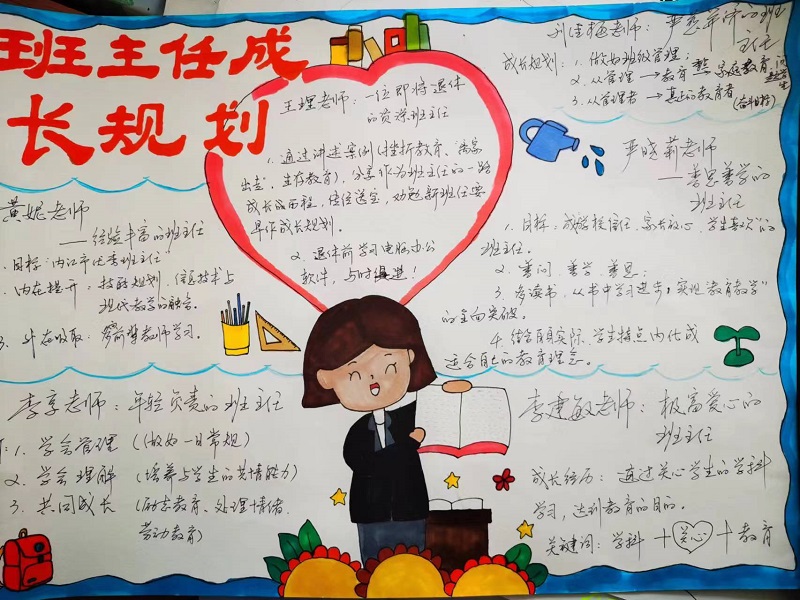 班主任成
长规划
王理老师：一位即将退休
的资深班主任
1. 通过讲述案例（挫折教育、离家
出走、生存教育），分享作为班主任的一路
成长的历程，传位送宝，勉新班任要
早作成长规划。
2. 退休前学习电脑办公
软件，与时俱进！
老师：严思单济的班
主任
成长规划：1. 做好班级管理；
2. 从管理→教育 家庭教育
3. 从管理者→真正的教育者
严晓莉老师
——善思善学的
班主任
1. 目标：成学校信任、家长放心、学生喜欢的
班主任。
2. 善问、善学、善思；
3. 多读书，从书中学习进步，实现“教育教学”
的全面突破。
4. 结合自身实际、学生特点内化成
适合自己的教育理念。
黄妮老师
——经验丰富的班主任
目标：内江市优秀班主任
内在提升：技能规划、信息技术与
现代教学的融合。
3. 外在吸取：多向前辈教师学习。
李享老师：年轻负责的班主任
1. 学会管理（做好一日常规）
2. 学会理解（培养与学生的共情能力）
3. 共同成长（励志教育、处理情绪、
劳动教育）
李建敏老师：极富爱心的
班主任
成长经历：通过关心学生的学科
学习，达到教育的目的。
关键词：学科＋关心＋教育